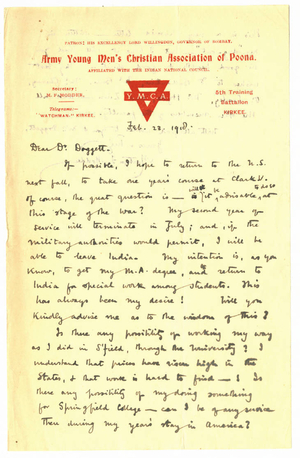 PATRON HIS EXCELLENCY LORD WILLINGDON, GOVERNOR OF BOMBAY.
Army Young Men's Christian Association of Poona.
AFFILIATED WITH THE INDIAN NATIONAL COUNCIL.
Secretary:
Telegrams:
"WATCHMAN," KIRKEE.
Y.M.C.A.
5th Training
Battalion
KIRKEE
Feb. 22. 1918.
Dear Dr. Doggett.
If possible, I hope to return to the U.S.
next fall, to take one year's course at Clark U.
Of course, the great question is - will it be advisable, at
to do so
this stage of the war? My second year of
service will terminate in July; and, if the
military authorities would permit, I will be
able to leave India. My intention is, as you
know, to get my M.A. degree, and return to
India for special work among students. This
has always been my desire! Will you
kindly advise me as to the wisdom of this?
Is there any possibility of working my way
as I did in S'field, through the University? I
understand that prices have risen high in the
States, & that work is hard to find - ! Is
there any possibility of my doing something
for Springfield College - can I be of any service
there during my year's stay in America?